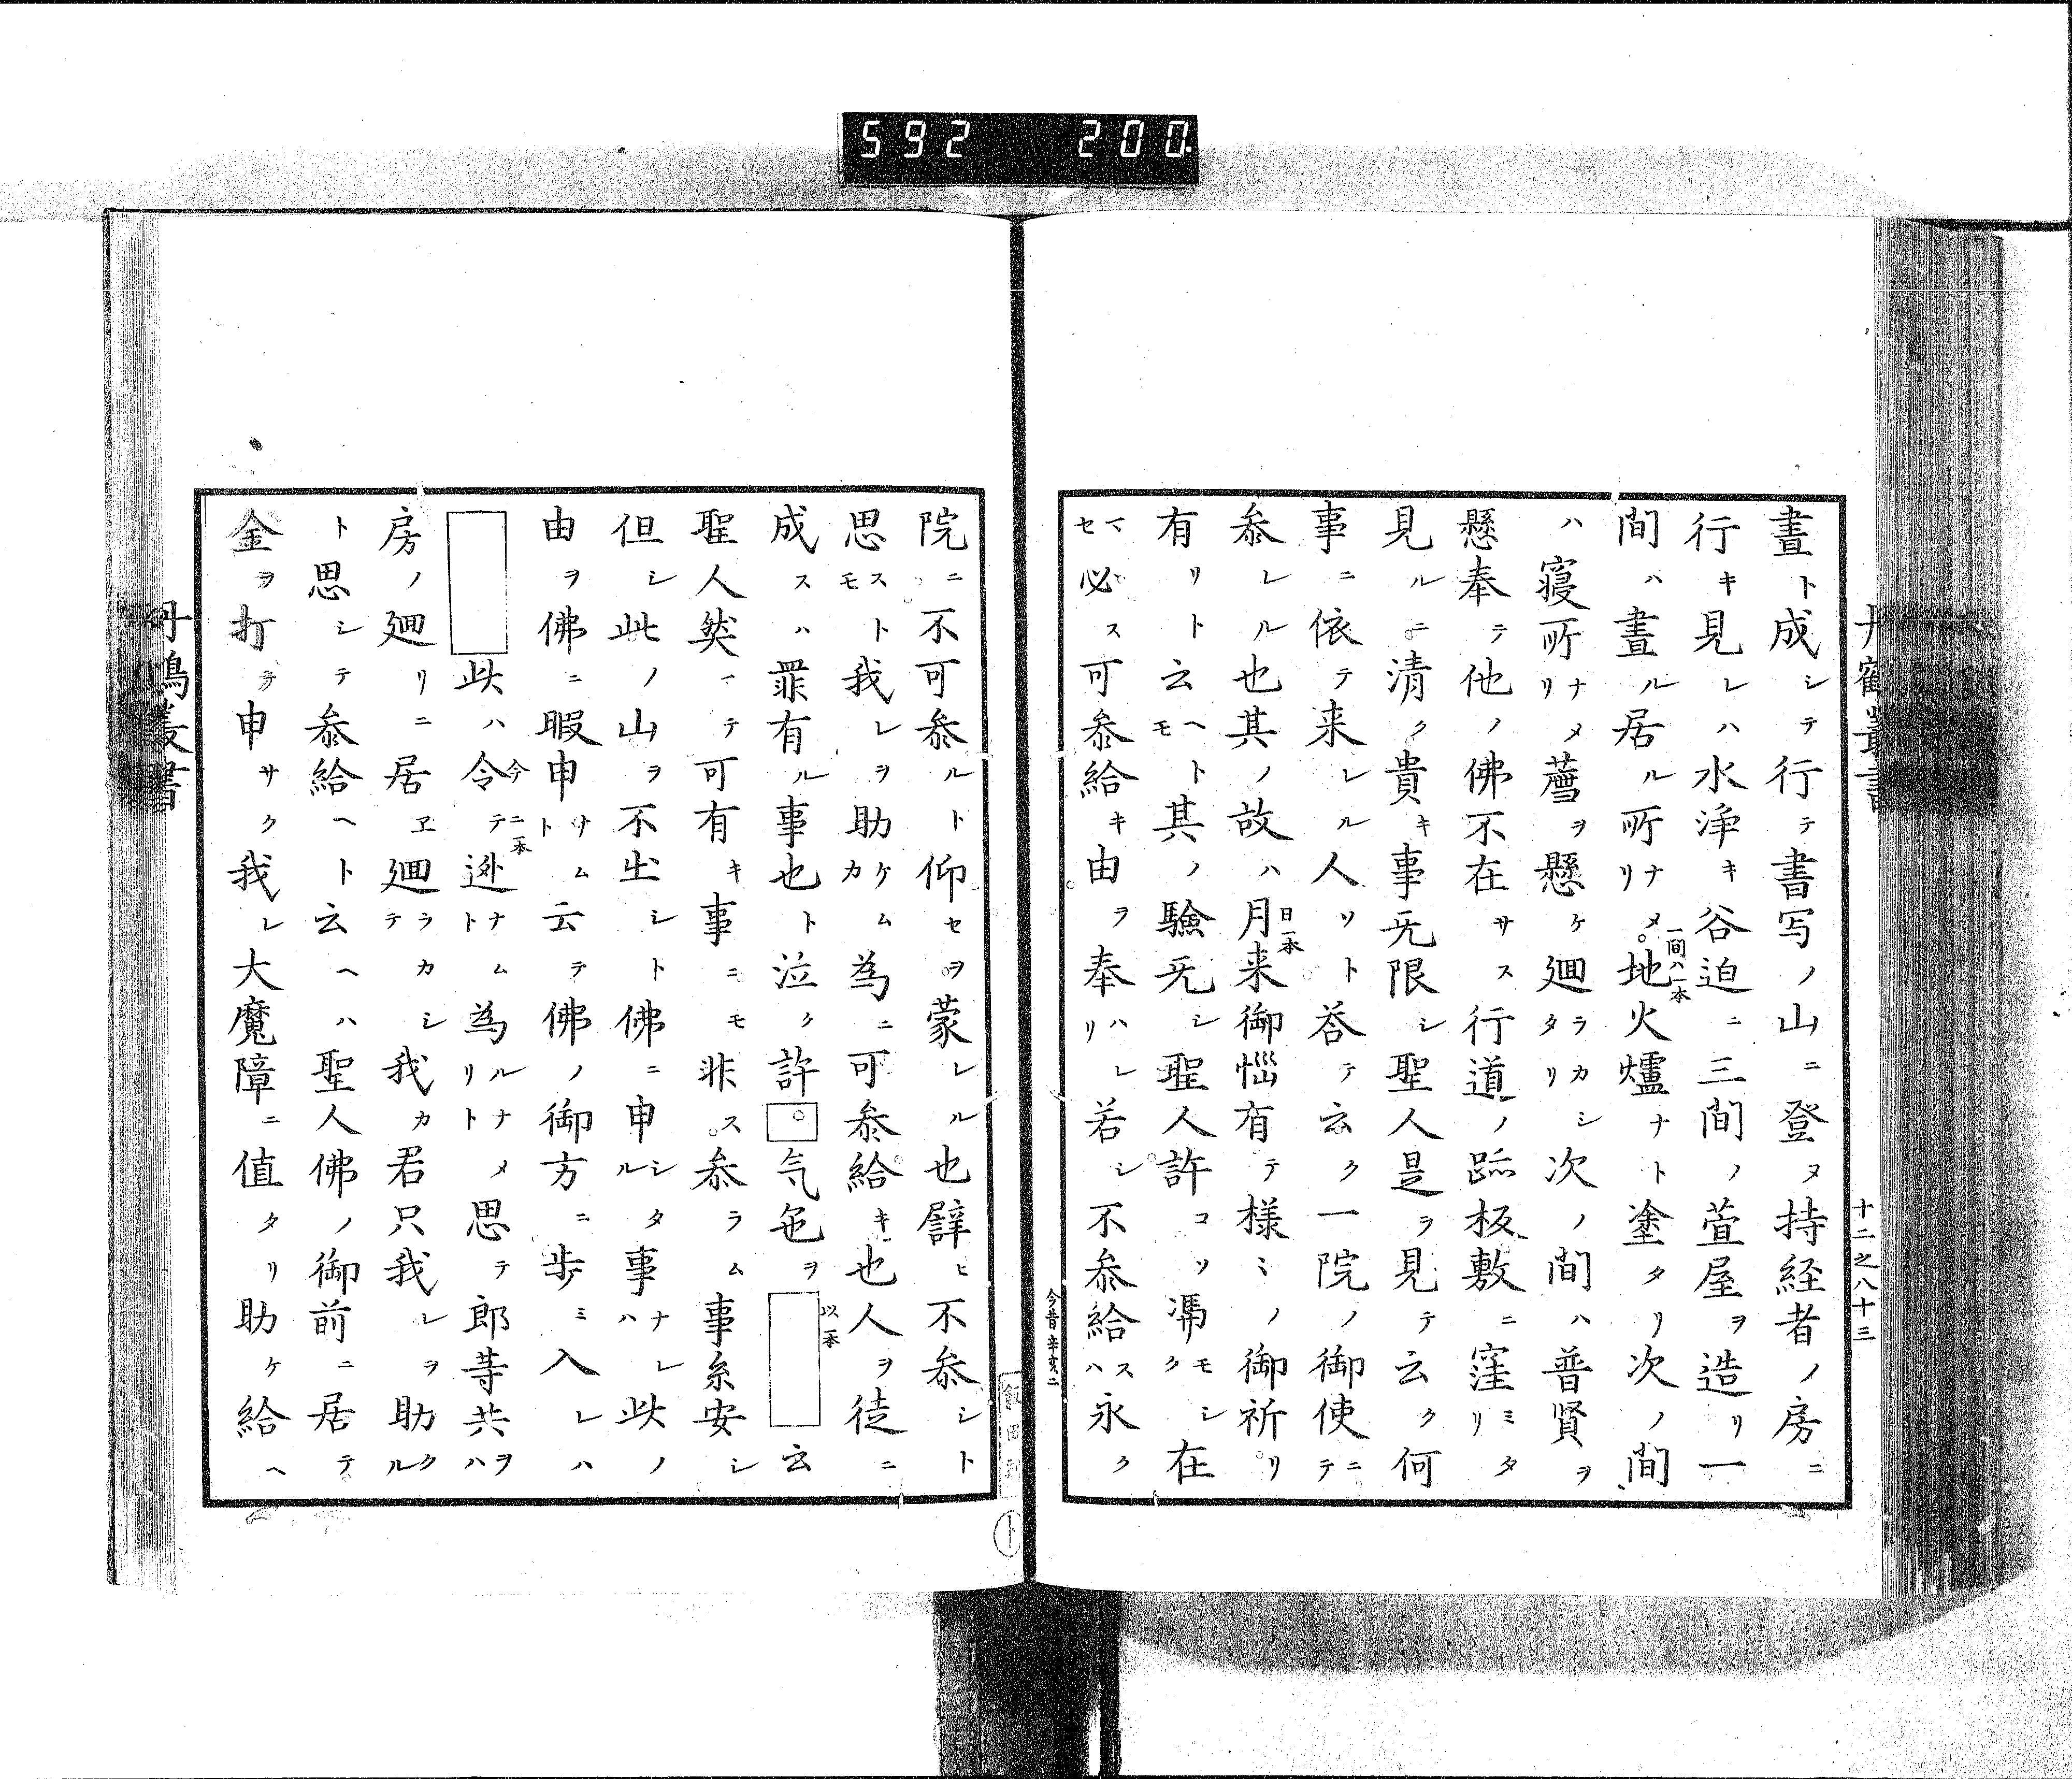 592 200
丹鶴叢書
十二之八十三
晝ト成シテ行テ書写ノ山ニ登ヌ持経者ノ房ニ
行キ見レハ水浄キ谷迫ニ三間ノ萱屋ヲ造リ一
間ハ晝ル居ル所ナメリ地火爐ナト塗タリ次ノ間
一間ハ一本
ハ寝所ナメリ薦ヲ懸ケ廻ラカシタリ次ノ間ハ普賢ヲ
懸奉テ他ノ佛不在サス行道ノ跡板敷ニ窪ミタリ
見ルニ清ク貴キ事无限シ聖人是ヲ見テ云ク何
事ニ依テ来レル人リト荅テ云ク一院ノ御使ニテ
叅レル也其ノ故ハ月来御惱有テ様ミノ御祈リ
日一本
有リト云ヘトモ其ノ驗无シ聖人許コソ馮モシク在
マセ必ス可叅給キ由ヲ奉ハレリ若シ不叅給スハ永ク
今昔 辛亥二
院ニ不可叅ルト仰セヲ蒙レル也辟ヒ不叅シト
思ストモ我レヲ助ケムカ為ニ可叅給キ也人ヲ徒ニ
成スハ罪有ル事也ト泣ク許□气色ヲ□云
以一本
聖人然マテ可有キ事ニモ非ス叅ラム事糸安シ
但シ此ノ山ヲ不出シト佛ニ申シタル事ナレハ此ノ
由ヲ佛ニ暇申ナムト云テ佛ノ御方ニ歩ミ入レハ
□此ハ令テ迯ナムト為ルナメリト思テ郎等共ヲハ
今ニ一本
房ノ廻リニ居ヱ廻ラカシテ我カ君只我レヲ助クル
ト思シテ叅給ヘト云ヘハ聖人佛ノ御前ニ居テ
金ヲ打テ申サク我レ大魔障ニ値タリ助ケ給ヘ
丹鶴叢書